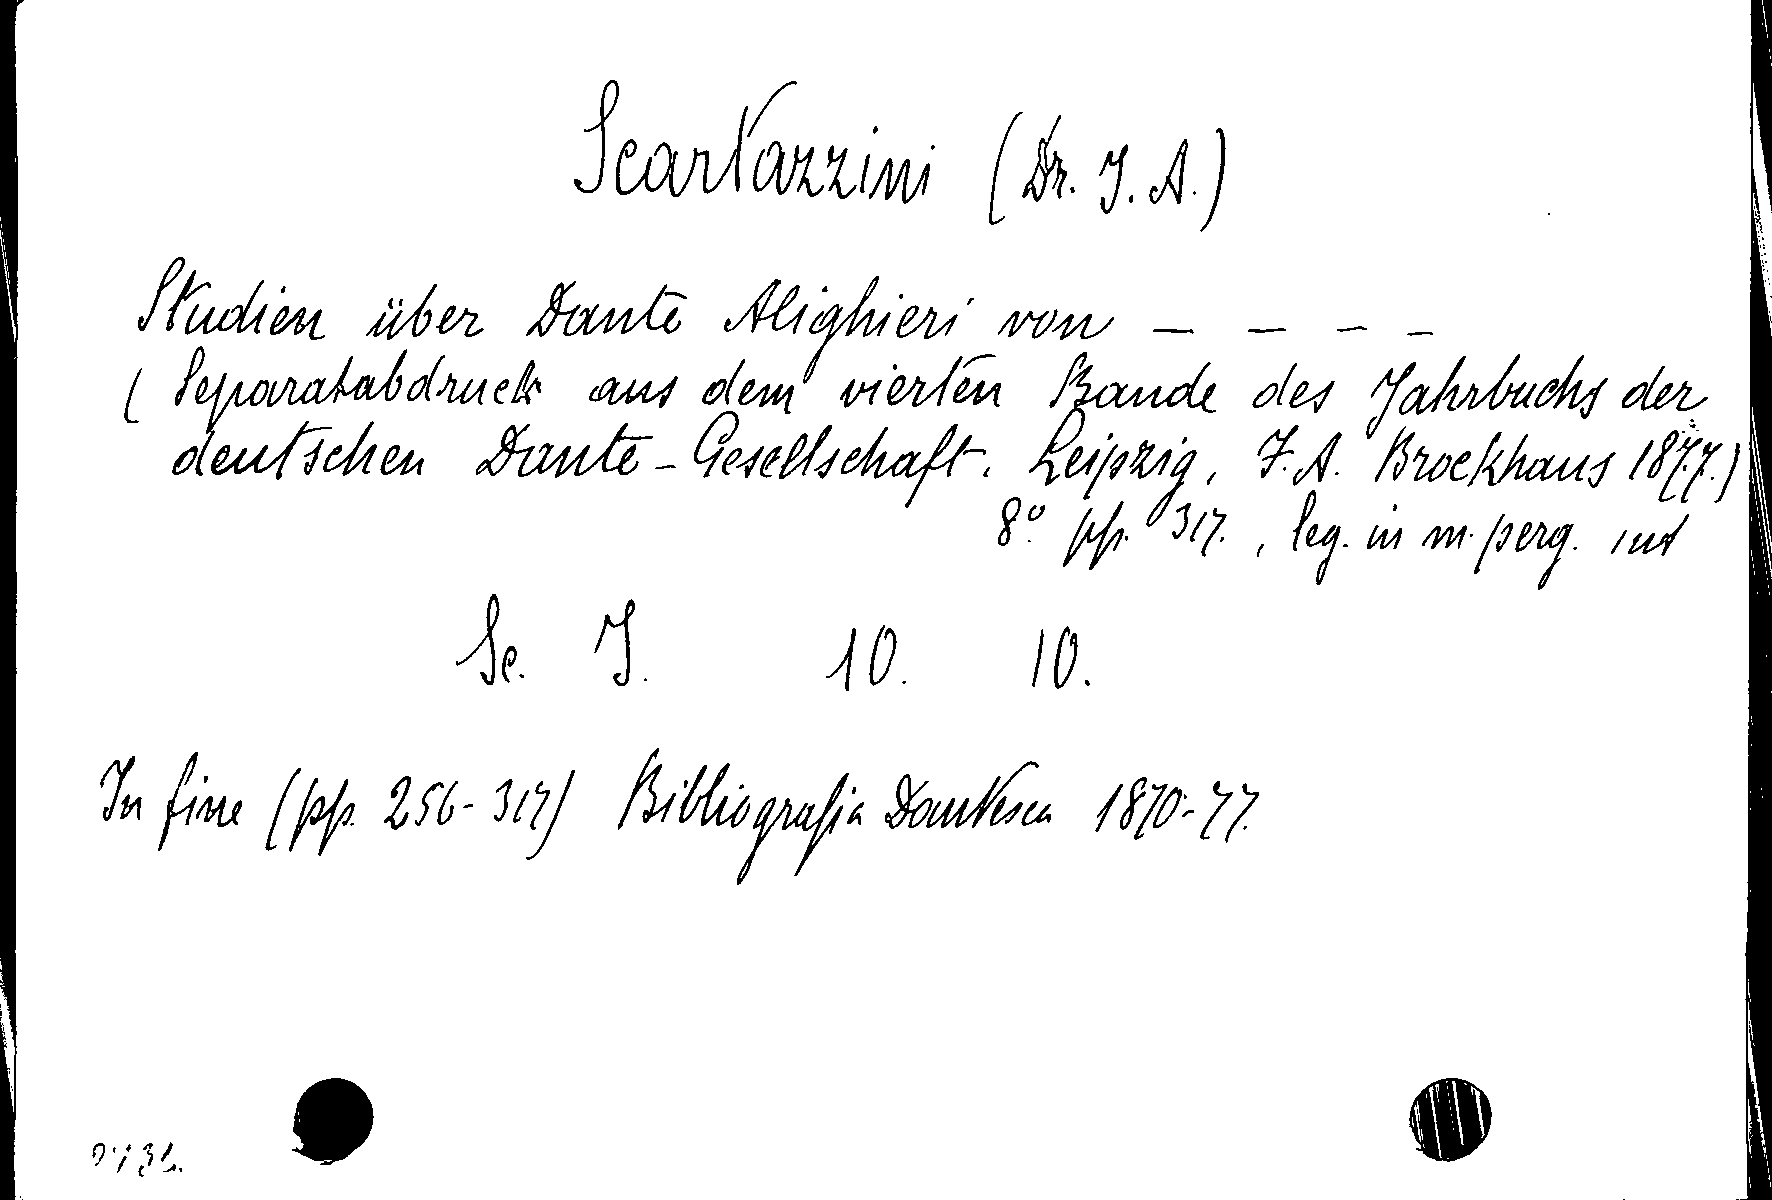 Scartazzini (Dr. J. A.)
Studien über Dante Alighieri von _ _ _ _
( Separatabdruck aus dem vierten Bande des Jahrbuchs der
deutschen Dante-Gesellschaft. Leipzig, F. A. Brockhaus 1877.)
8º pp. 317. , leg. in m. perg. int
Sc. I. 10. 10.
In fine (pp. 256-317) Bibliografia Dantesca 1870-77.